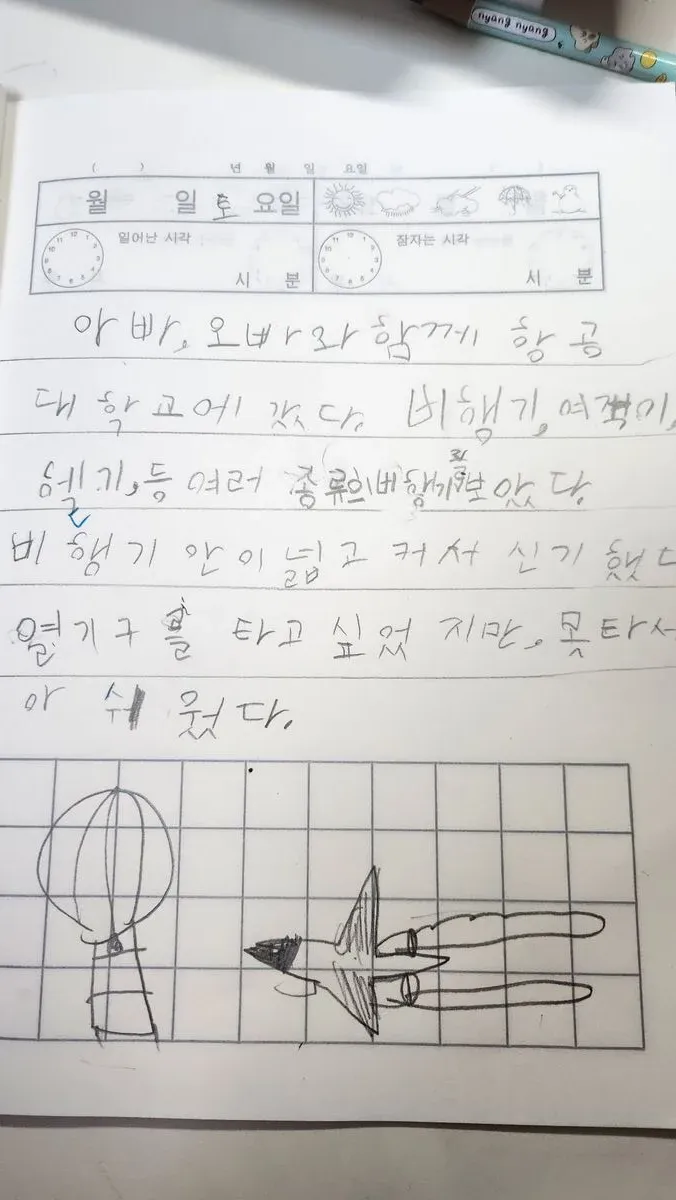 nyang nyang
( ) 년 월 일 요일
월 일 토 요일
일어난 시각 잠자는 시각
시 분 시 분
아빠, 오빠와 함께 항공
대학교에 갔다. 비행기, 여객기,
헬기, 등 여러 종류의 비행기를 보았다.
비행기 안이 넓고 커서 신기했다
열기구를 타고 싶었지만, 못타서
아쉬웠다.